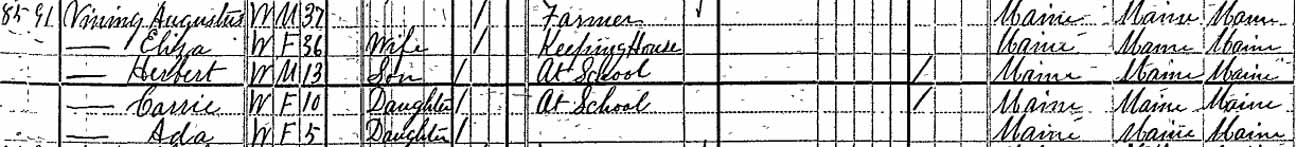 85 91 Vining Augustus W M 37 / Farmer Maine Maine Maine
— Eliza W F 36 Wife / Keeping House Maine Maine Maine
— Herbert W M 13 Son / At School / Maine Maine Maine
— Carrie W F 10 Daughter / At School / Maine Maine Maine
— Ada W F 5 Daughter / Maine Maine Maine